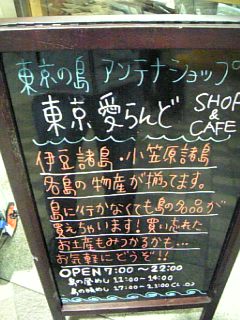 東京の島 アンテナショップ
東京 愛らんど
SHOP
&
CAFE
伊豆諸島・小笠原諸島
各島の物産が揃ってます。
島に行かなくても島の名品が
買えちゃいます!買い忘れた
お土産もみつかるかも…
お気軽にどうぞ!!
OPEN 7:00〜22:00
島の昼めし 12:00〜14:00
島の晩めし 17:00〜23:00 CL.O.